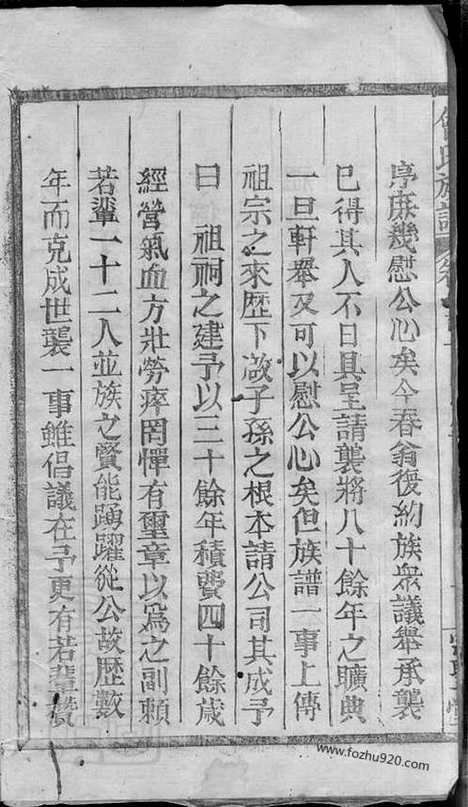 序庶幾慰公心矣今春翁復約族眾議舉承襲
已得其人不日具呈請襲將八十餘年之曠典
一旦軒舉又可以慰公心矣但族譜一事上傳
祖宗之來歷下啟子孫之根本請公司其成予
曰　祖祠之建予以三十餘年積費四十餘歲
經營氣血方壯勞瘁罔憚有璽章以為之副賴
若輩一十二人並族之賢能踴躍從公故歷數
年而克成世襲一事雖倡議在予更有若輩贊
氏族譜
www.fozhu920.com